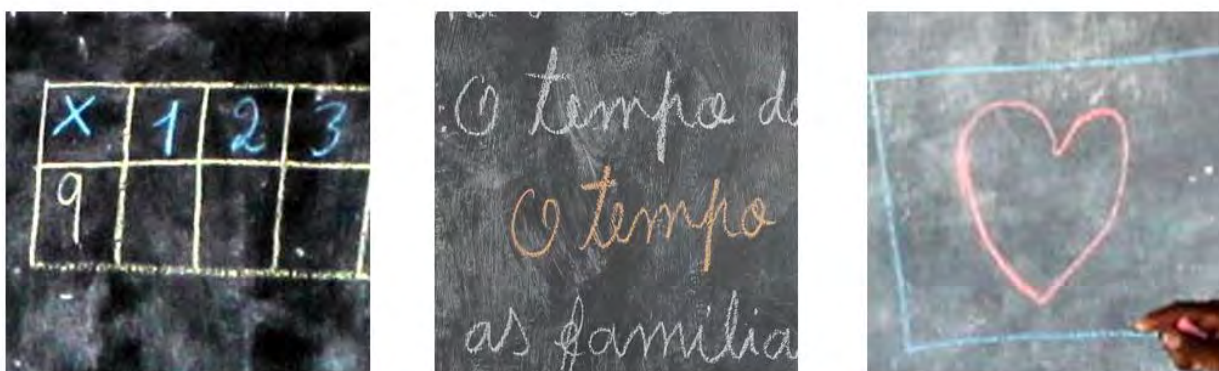 X 1 2 3
9
O tempo do
O tempo
as familia